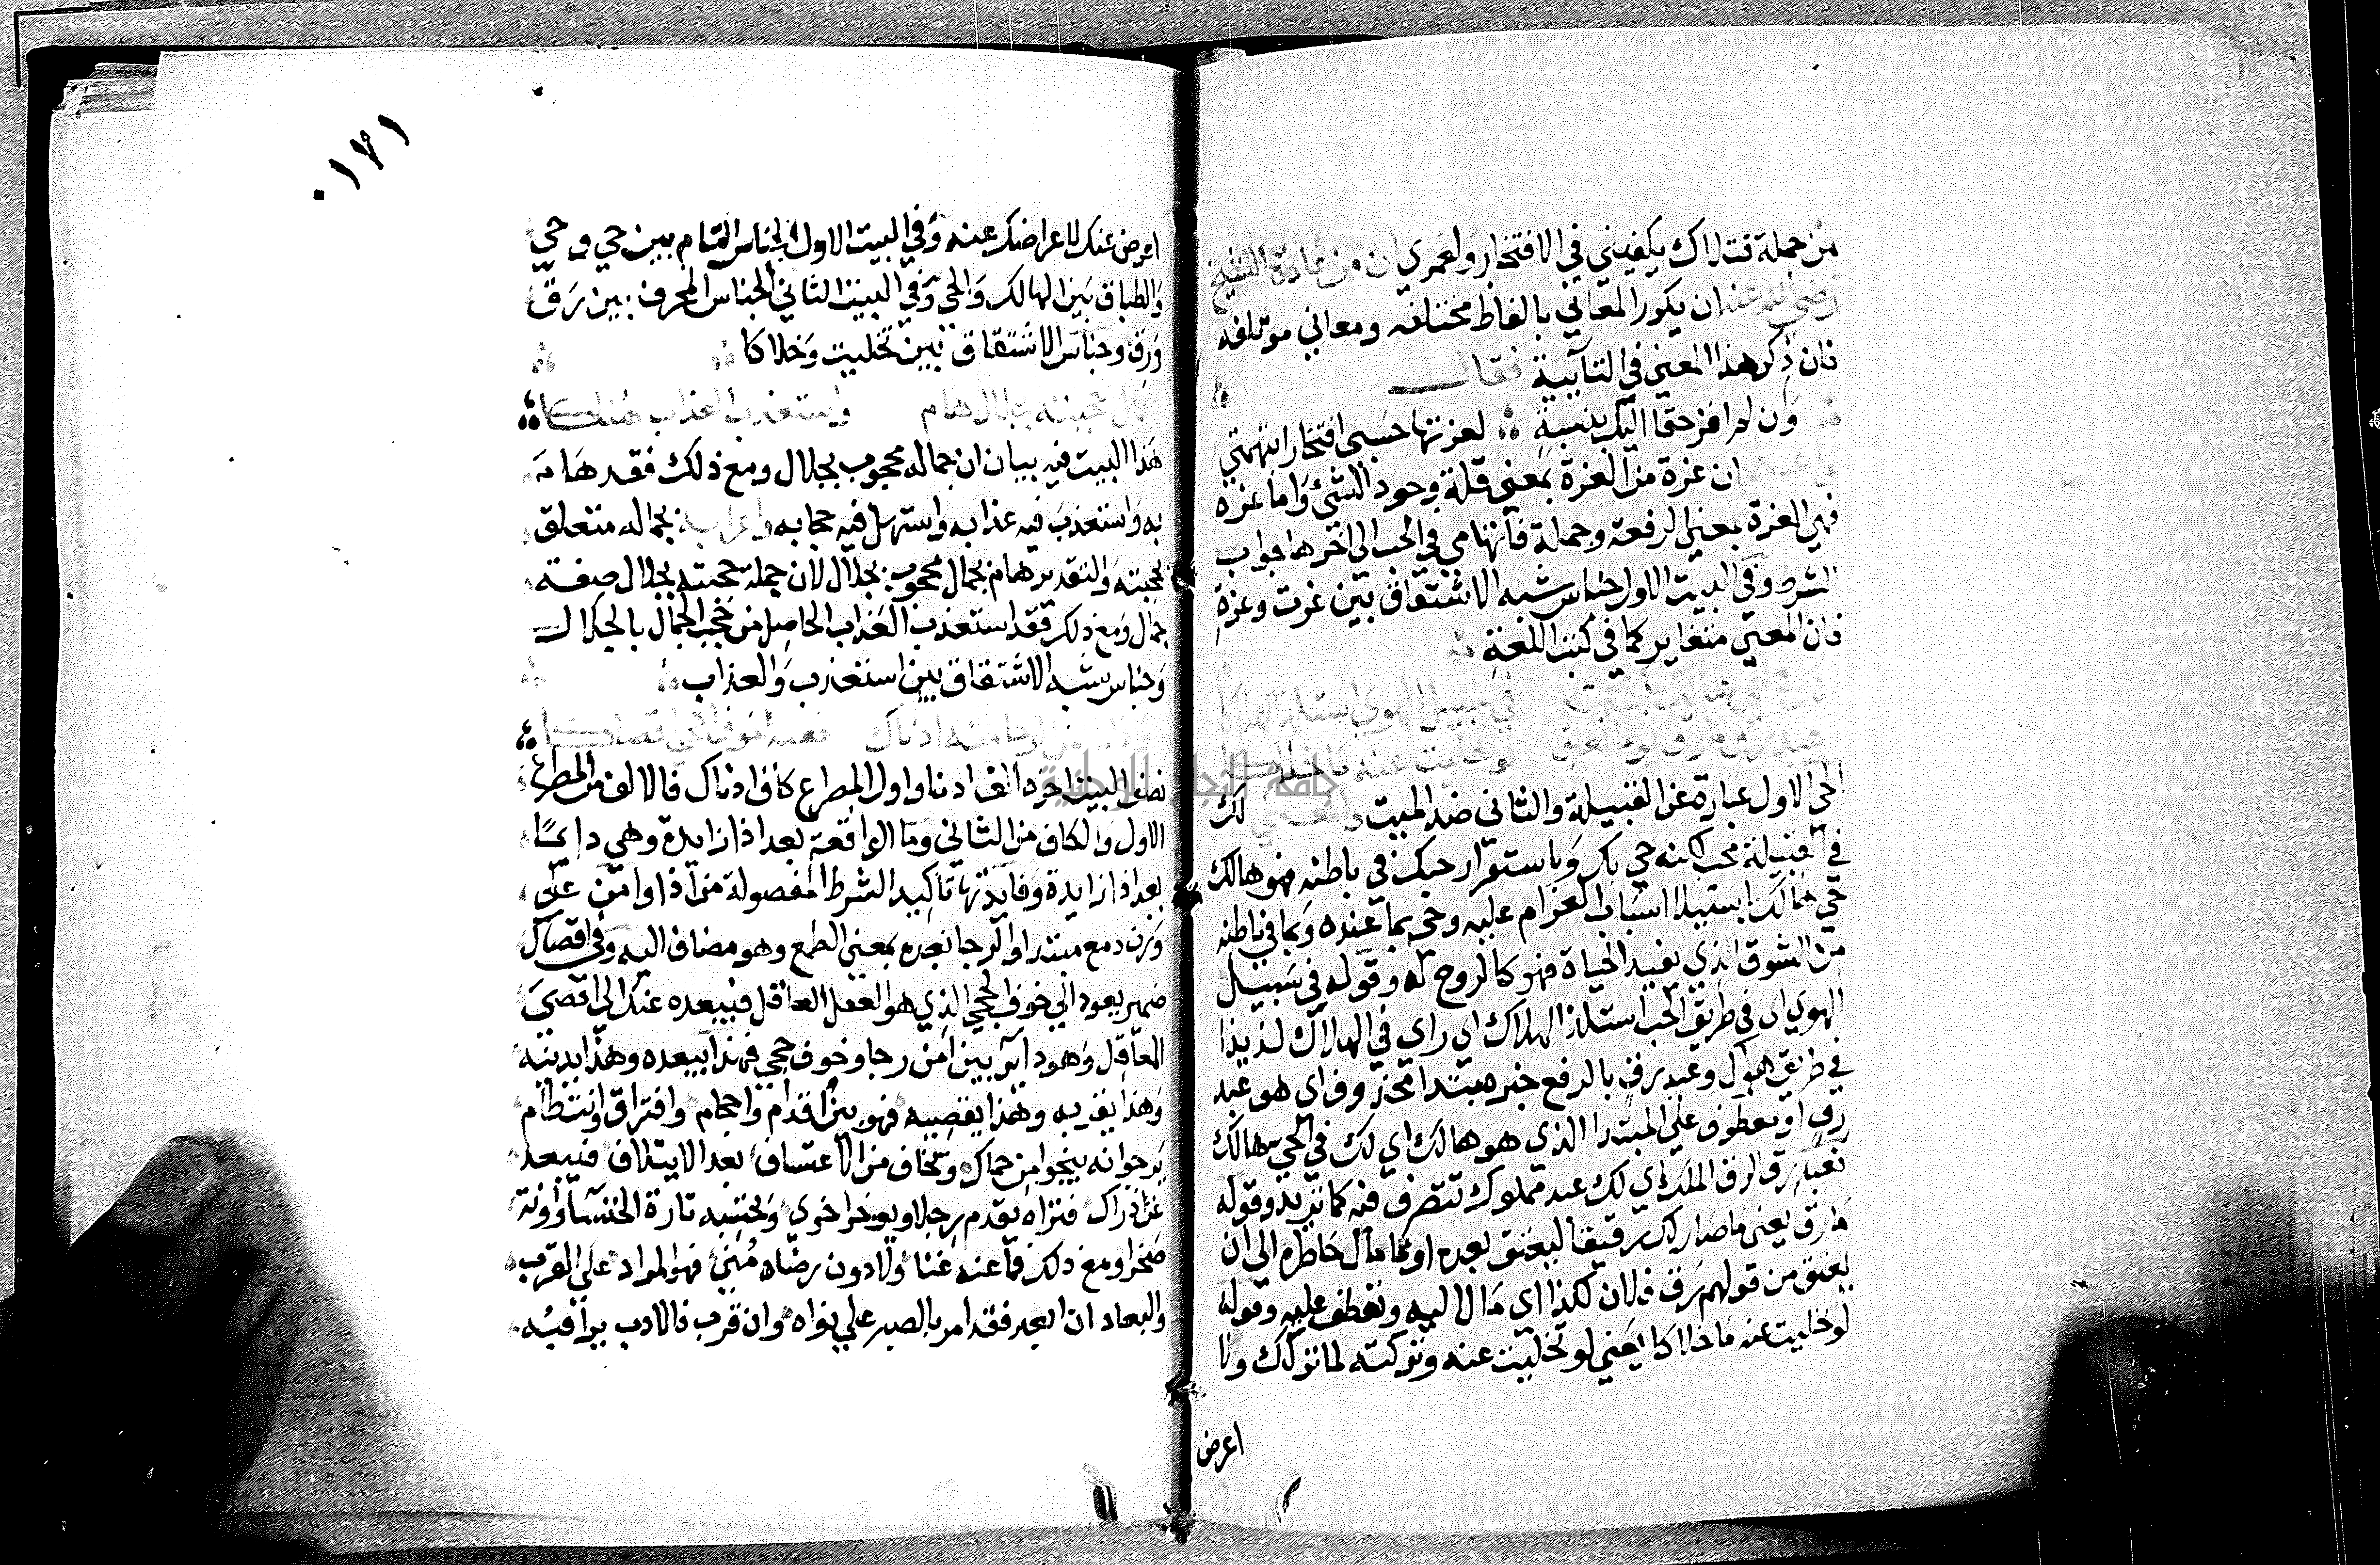 من جملة قتلاك يكفيني في الافتخار ولعمري ان من عادة الشيخ
رضي الله عنه ان يكور المعاني بالفاظ مختلفه ومعاني موتلفه
فان ذكر هذا المعني في التآيية فقال
وان لم افز حقا اليك بنسبة لعزتها حسبي افتخارا بتهمتي
ان عزة من العزة بمعني قلة وجود الشيء واما عزه
فهي العزة بمعني الرفعة وجملة فانهامي في الحب الي اخرها جواب
الشرط وفي البيت الاول جناس شبه الاشتقاق بين عزت وعزة
فان المعني متغاير كما في كتب اللغة
في سبيل الهوي استلذ الهلاكا
عبد رق ما رق يوما لعتق لو تخليت عنه ما خلاكا
الحي الاول عبارة عن القبيلة والثاني ضد الميت لك
في القبيلة محب لكنه حي بك وباستقرار حبك في باطنه فهو هالك
حي هالك باستيلا اسباب الغرام عليه وحي بما عنده وبما في باطنه
من الشوق الذي يفيد الحياة فهو كالروح له وقوله في سبيل
الهوي اي في طريق الحب استلذ الهلاك اي راي في الهلاك لذيذا
في طريق هواك وعبد رق بالرفع خبر مبتدا محذوف اي هو عبد
رق او معطوف علي المبتدا الذي هو هالك اي لك في الحي هالك
تعبد رق الرق الملك اي لك عبد مملوك تتصرف فيه كما تريد وقوله
ما رق يعني ما صار لك رقيقا ليعتق بعده او ما مال خاطره الي ان
يعتق من قولهم رق فلان لكذا اي مال اليه وتعطف عليه وقوله
لو خليت عنه ما خلاكا يعني لو تخليت عنه وتركته لما تركك ولا
اعرض
٠١٧١
اعرض عنك لاعراضك عنه وفي البيت الاول الجناس التام بين حي وحي
والطباق بين الهالك والحي وفي البيت الثاني الجناس المحرف بين رق
ورق وجناس الاشتقاق بين تخليت وخلاكا
بجمال حجبته بجلال هام واستعذب العذاب هناكا
هذا البيت فيه بيان ان جماله محجوب بجلال ومع ذلك فقد هام
به واستعذب فيه عذابه واستهل فيه حجابه واعرابه بجماله متعلق
بحجبته والتقدير هام بجمال محجوب بجلال لان جملة حجبته بجلال صفة
جمال ومع ذلك فقد استعذب العذاب الحاصل من حجب الجمال بالجلال
وجناس شبه الاشتقاق بين استعذب والعذاب
واذا ما امن الرجا منه ادناك فعنه خوف الحجي اقصاكا
نصف البيت اخره الف ادنا واول المصراع كاف ادناك فالالف من المصراع
الاول والكاف من الثاني وما الواقعة بعد اذا زايدة وهي دايما
بعد اذا زايدة وفايدتها تاكيد الشرط المفصولة من اذا وامن علي
وزن دمع مبتدا والرجا بعده بمعني الطمع وهو مضاف اليه وفي اقصاك
ضمير يعود الي خوف الحجي الذي هو العقل العاقل فيبعده عنك الي اقصي
المعاقل وهو داير بين امن رجا وخوف حجي فهذا يبعده وهذا يدينه
وهذا يقربه وهذا يقصيه فهو بين اقدام واحجام وافتراق وانتظام
يرجو انه ينجو من حماك ويخاف من الاعتساف بعد الايتلاف فيبعد
عن ذراك فتراه يقدم رجلا ويوخر اخري وتحتسبه تارة الخنساء واونة
صخرا ومع ذلك فما عنه غنا ولا دون رضاه مني فهو المراد علي القرب
والبعاد ان ابعد فقد امر بالصبر علي نواه وان قرب فالادب يراقبه